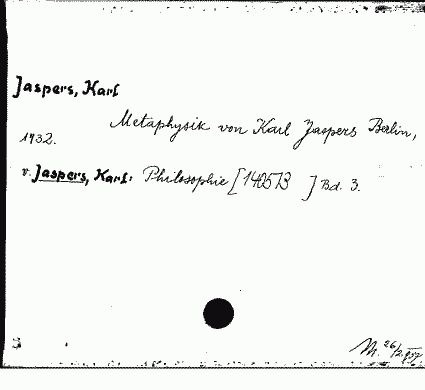 Jaspers, Karl
Metaphysik von Karl Jaspers Berlin,
1932.
v. Jaspers, Karl: Philosophie [140573 ] Bd. 3.